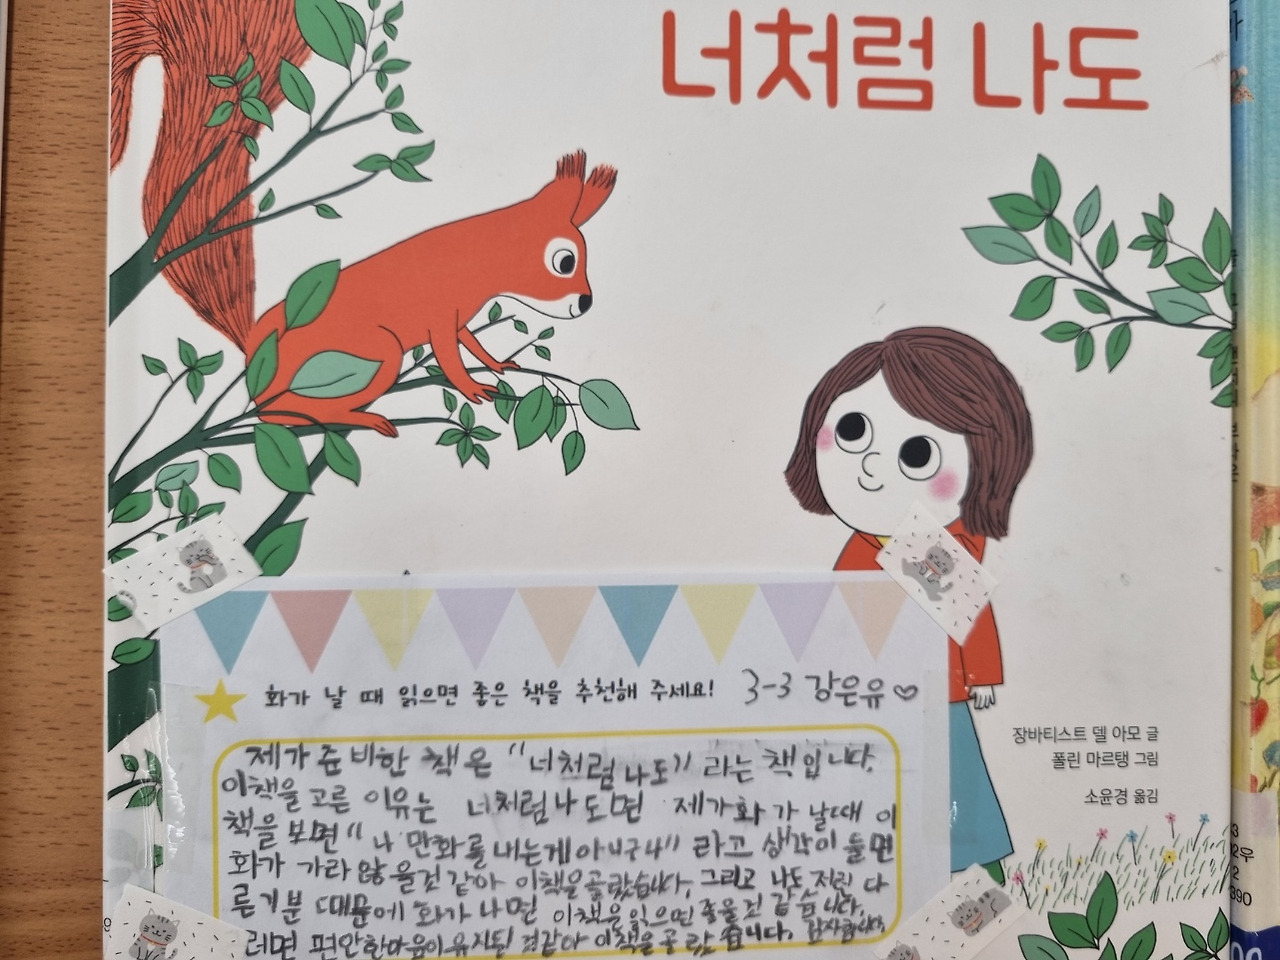 너처럼 나도
장바티스트 델 아모 글
폴린 마르탱 그림
소윤경 옮김
화가 날 때 읽으면 좋은 책을 추천해 주세요! 3-3 강은유♡
제가 준비한 책은 "너처럼 나도" 라는 책입니다.
이책을 고른 이유는 너처럼나도면 제가화가 날때 이
책을 보면 "나 만화를 내는게아니구나" 라고 생각이 들면
화가 가라 않을것 같아 이책을골랐습니다. 그리고 나도 저런 다
른기분 때문에 화가 나면 이책을읽으면 좋을것 같습니다.
레면 편안한마음이유지될 것같아 이책을골랐습니다. 감사합니다.